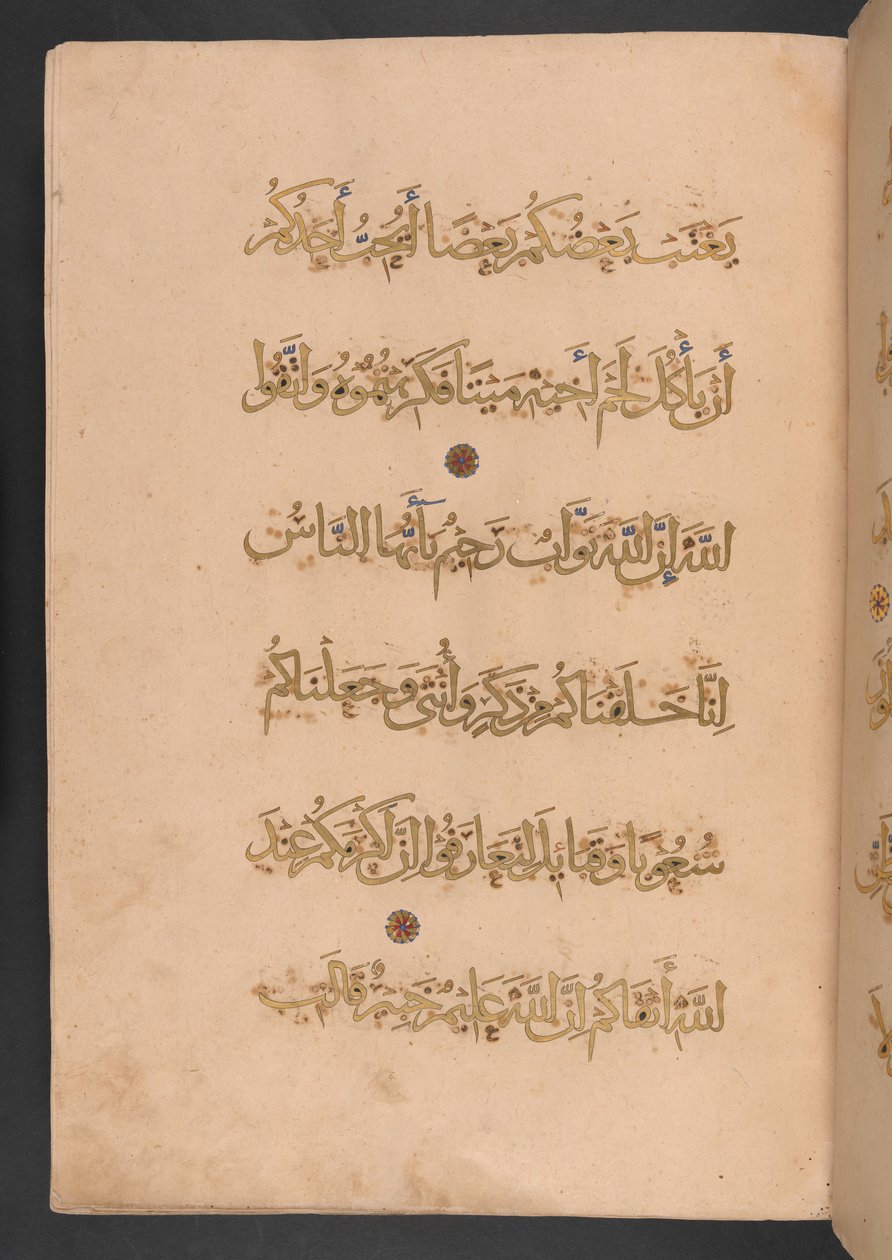 يَغْتَب بَعْضُكُمْ بَعْضًا أَيُحِبُّ أَحَدُكُمْ
أَن يَأْكُلَ لَحْمَ أَخِيهِ مَيْتًا فَكَرِهْتُمُوهُ وَاتَّقُوا
اللَّهَ إِنَّ اللَّهَ تَوَّابٌ رَحِيمٌ يَا أَيُّهَا النَّاسُ
إِنَّا خَلَقْنَاكُمْ مِن ذَكَرٍ وَأُنْثَى وَجَعَلْنَاكُمْ
شُعُوبًا وَقَبَائِلَ لِتَعَارَفُوا إِنَّ أَكْرَمَكُمْ عِنْدَ
اللَّهِ أَتْقَاكُمْ إِنَّ اللَّهَ عَلِيمٌ خَبِيرٌ قَالَتِ